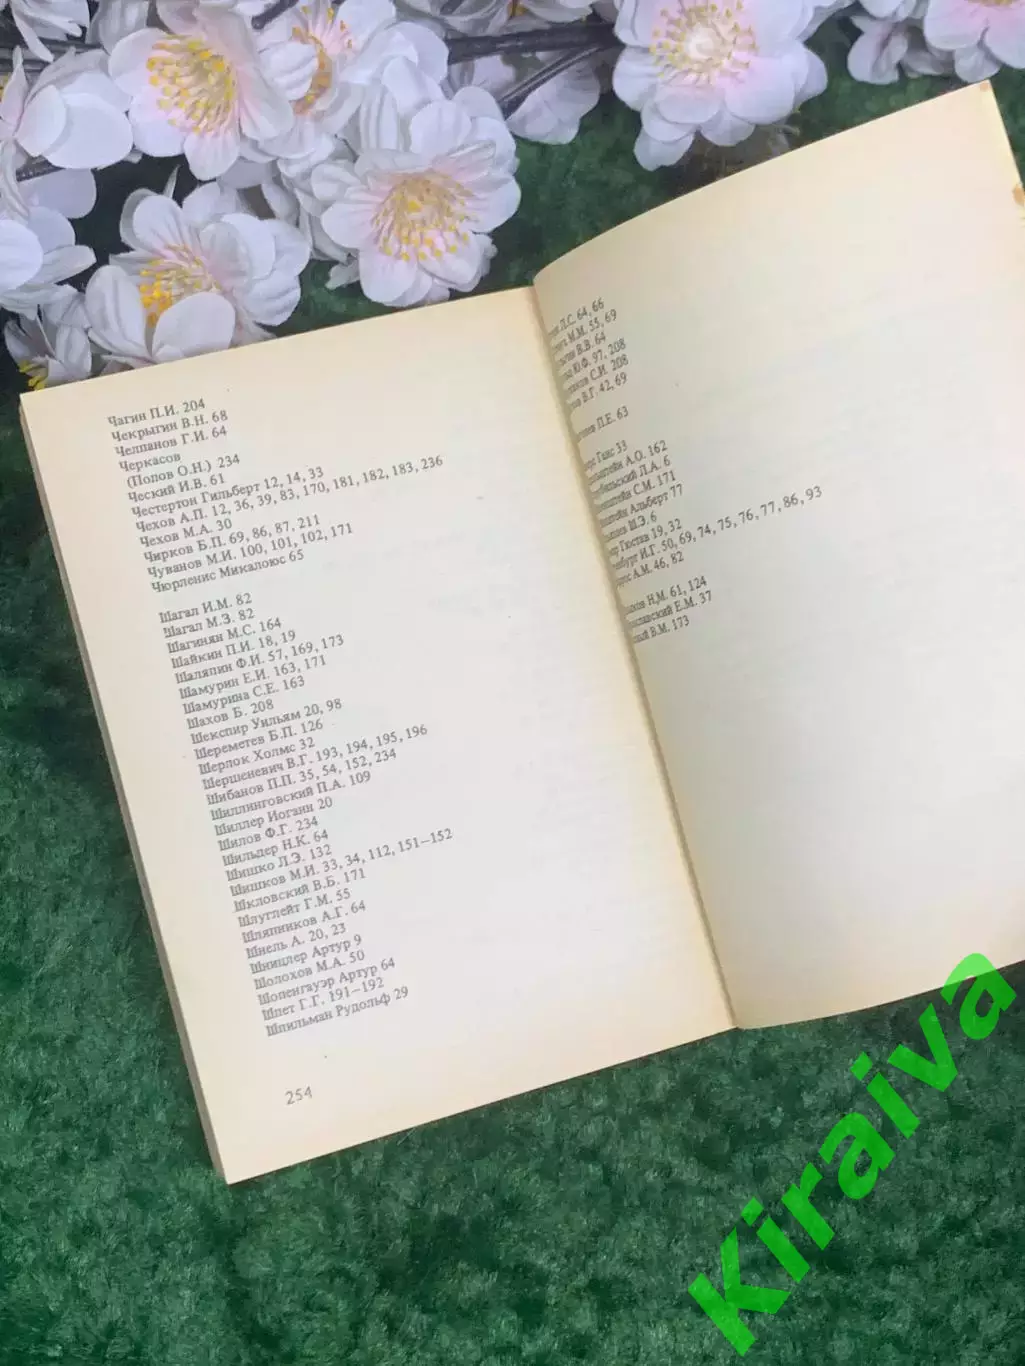 Чагин П.И. 204
Чекрыгин В.Н. 68
Челпанов Г.И. 64
Черкасов
(Попов О.Н.) 234
Ческий И.В. 61
Честертон Гильберт 12, 14, 33
Чехов А.П. 12, 36, 39, 83, 170, 181, 182, 183, 236
Чехов М.А. 30
Чирков Б.П. 69, 86, 87, 211
Чуванов М.И. 100, 101, 102, 171
Чюрленис Микалоюс 65
Шагал И.М. 82
Шагал М.З. 82
Шагинян М.С. 164
Шайкин П.И. 18, 19
Шаляпин Ф.И. 57, 169, 173
Шамурин Е.И. 163, 171
Шамурина С.Е. 163
Шахов Б. 208
Шекспир Уильям 20, 98
Шереметев Б.П. 126
Шерлок Холмс 32
Шершеневич В.Г. 193, 194, 195, 196
Шибанов П.П. 35, 54, 152, 234
Шиллинговский П.А. 109
Шиллер Иоганн 20
Шилов Ф.Г. 234
Шильдер Н.К. 64
Шишко Л.Э. 132
Шишков М.И. 33, 34, 112, 151–152
Шкловский В.Б. 171
Шлуглейт Г.М. 55
Шляпников А.Г. 64
Шнель А. 20, 23
Шницлер Артур 9
Шолохов М.А. 50
Шопенгауэр Артур 64
Шпет Г.Г. 191–192
Шпильман Рудольф 29
254
Л.С. 64, 66
М.М. 55, 69
В.В. 64
Ю.Ф. 97, 208
С.И. 208
В.Г. 42, 69
П.Е. 63
Ганс 33
А.О. 162
Л.А. 6
С.М. 171
Альберт 77
М.Э. 6
Гюстав 19, 32
И.Г. 50, 69, 74, 75, 76, 77, 86, 93
А.М. 46, 82
Н.М. 61, 124
Е.М. 37
В.М. 173
Kiraiva